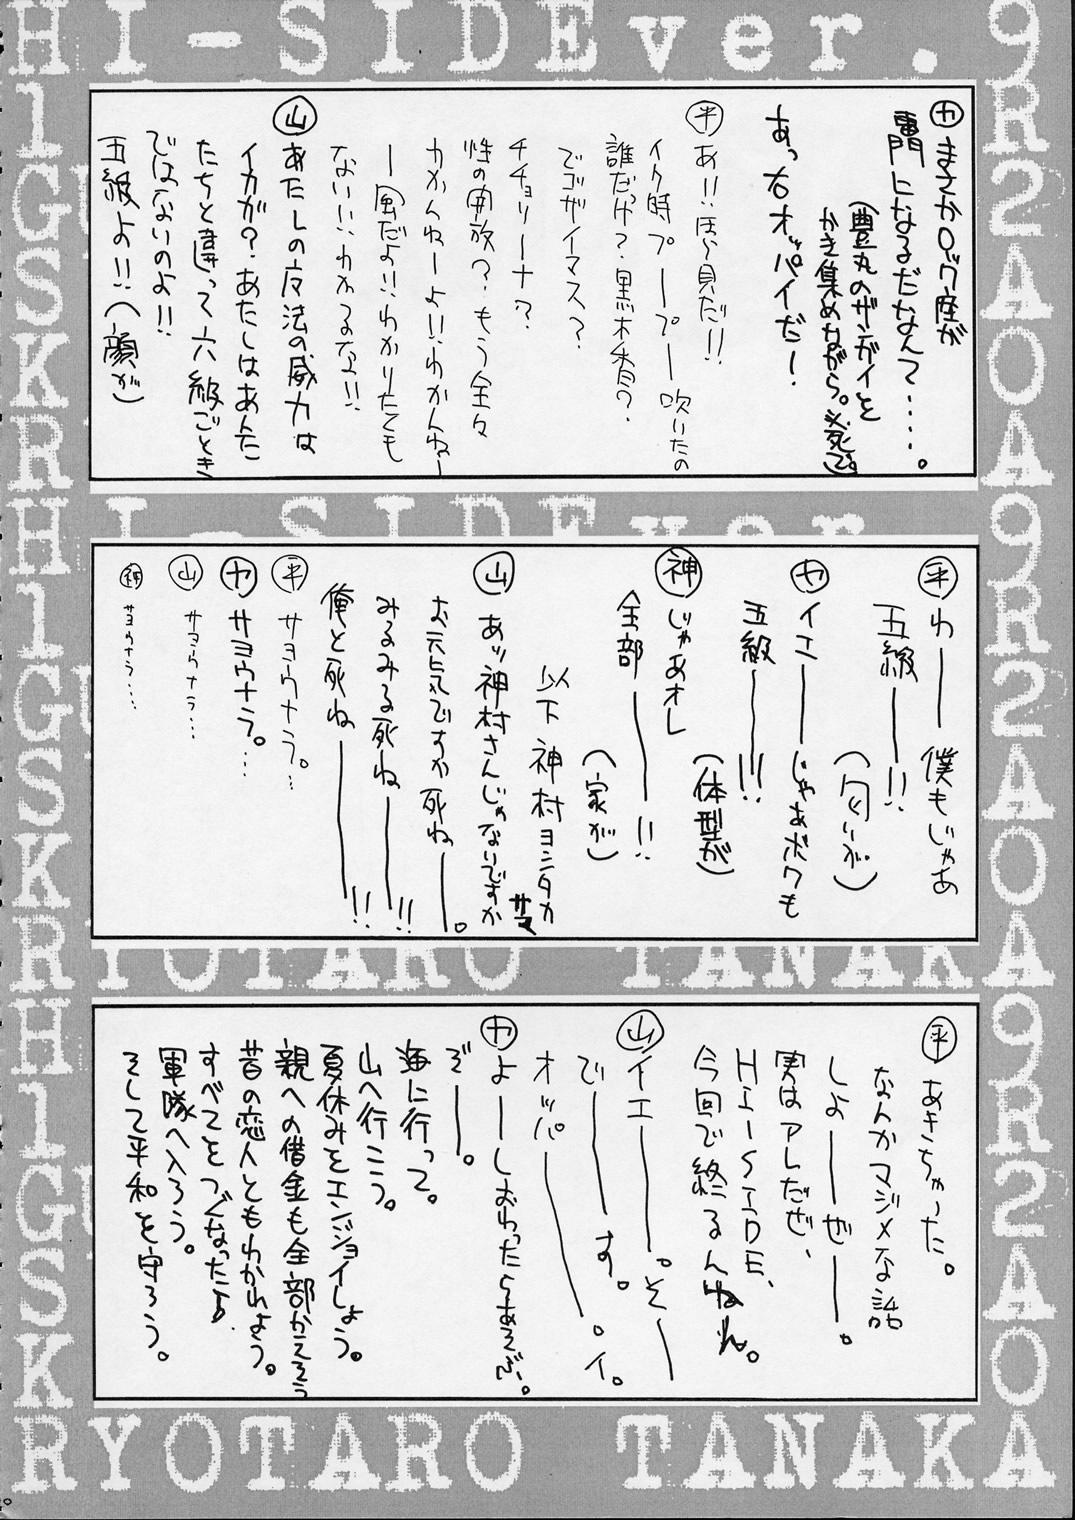 HI-SIDEver.
㋕まさかロック座が
専門になるだなんて・・・・・。
(豊丸のザンガイを
かき集めながら。必死で。)
あっ右オッパイだー!
㊥あ!!ほら見だ!!
イク時プープー吹いたの
誰だっけ?黒木香?
でゴザイマス?
チチョリーナ?
性の開放?もう全々
わかんねーよ!!わかんねー
ー風だよ!!わかりたくも
ない!!わかるな!!
山 あたしの反法の威力は
イカが?あたしはあんた
たちと違って六級ごとき
ではないのよ!!
五級よ!!(顔が)
平 わー 僕もじゃあ
五級ー!!
(匂いが)
カ イエーじゃあボクも
五級ー!!!
(体型が)
神 じゃあオレ
全部ー!!
(家が)
以下神村ヨシタカサマ
山 あッ神村さんじゃないですか
お元気ですか死ねー。
みるみる死ねー!!
俺と死ねー!!
平 サヨウナラ。…
カ サヨウナラ。…
山 サヨウナラ…
神 サヨウナラ…
平 あきちゃった。
なんかマジメな話
しよーぜー。
実はアレだぜ、
HI-SIDE、
今回で終るんね。
山 イエー。そー
でーす。
オッパー。イ。
カ よーしおわったらあそぶ。
ぞー。
海に行って。
山へ行こう。
夏休みをエンジョイしよう。
親への借金も全部かえそう
昔の恋人ともわかれよう。
すべてをつぐなったら
軍隊へ入ろう。
そして平和を守ろう。
RYOTARO TANAKA